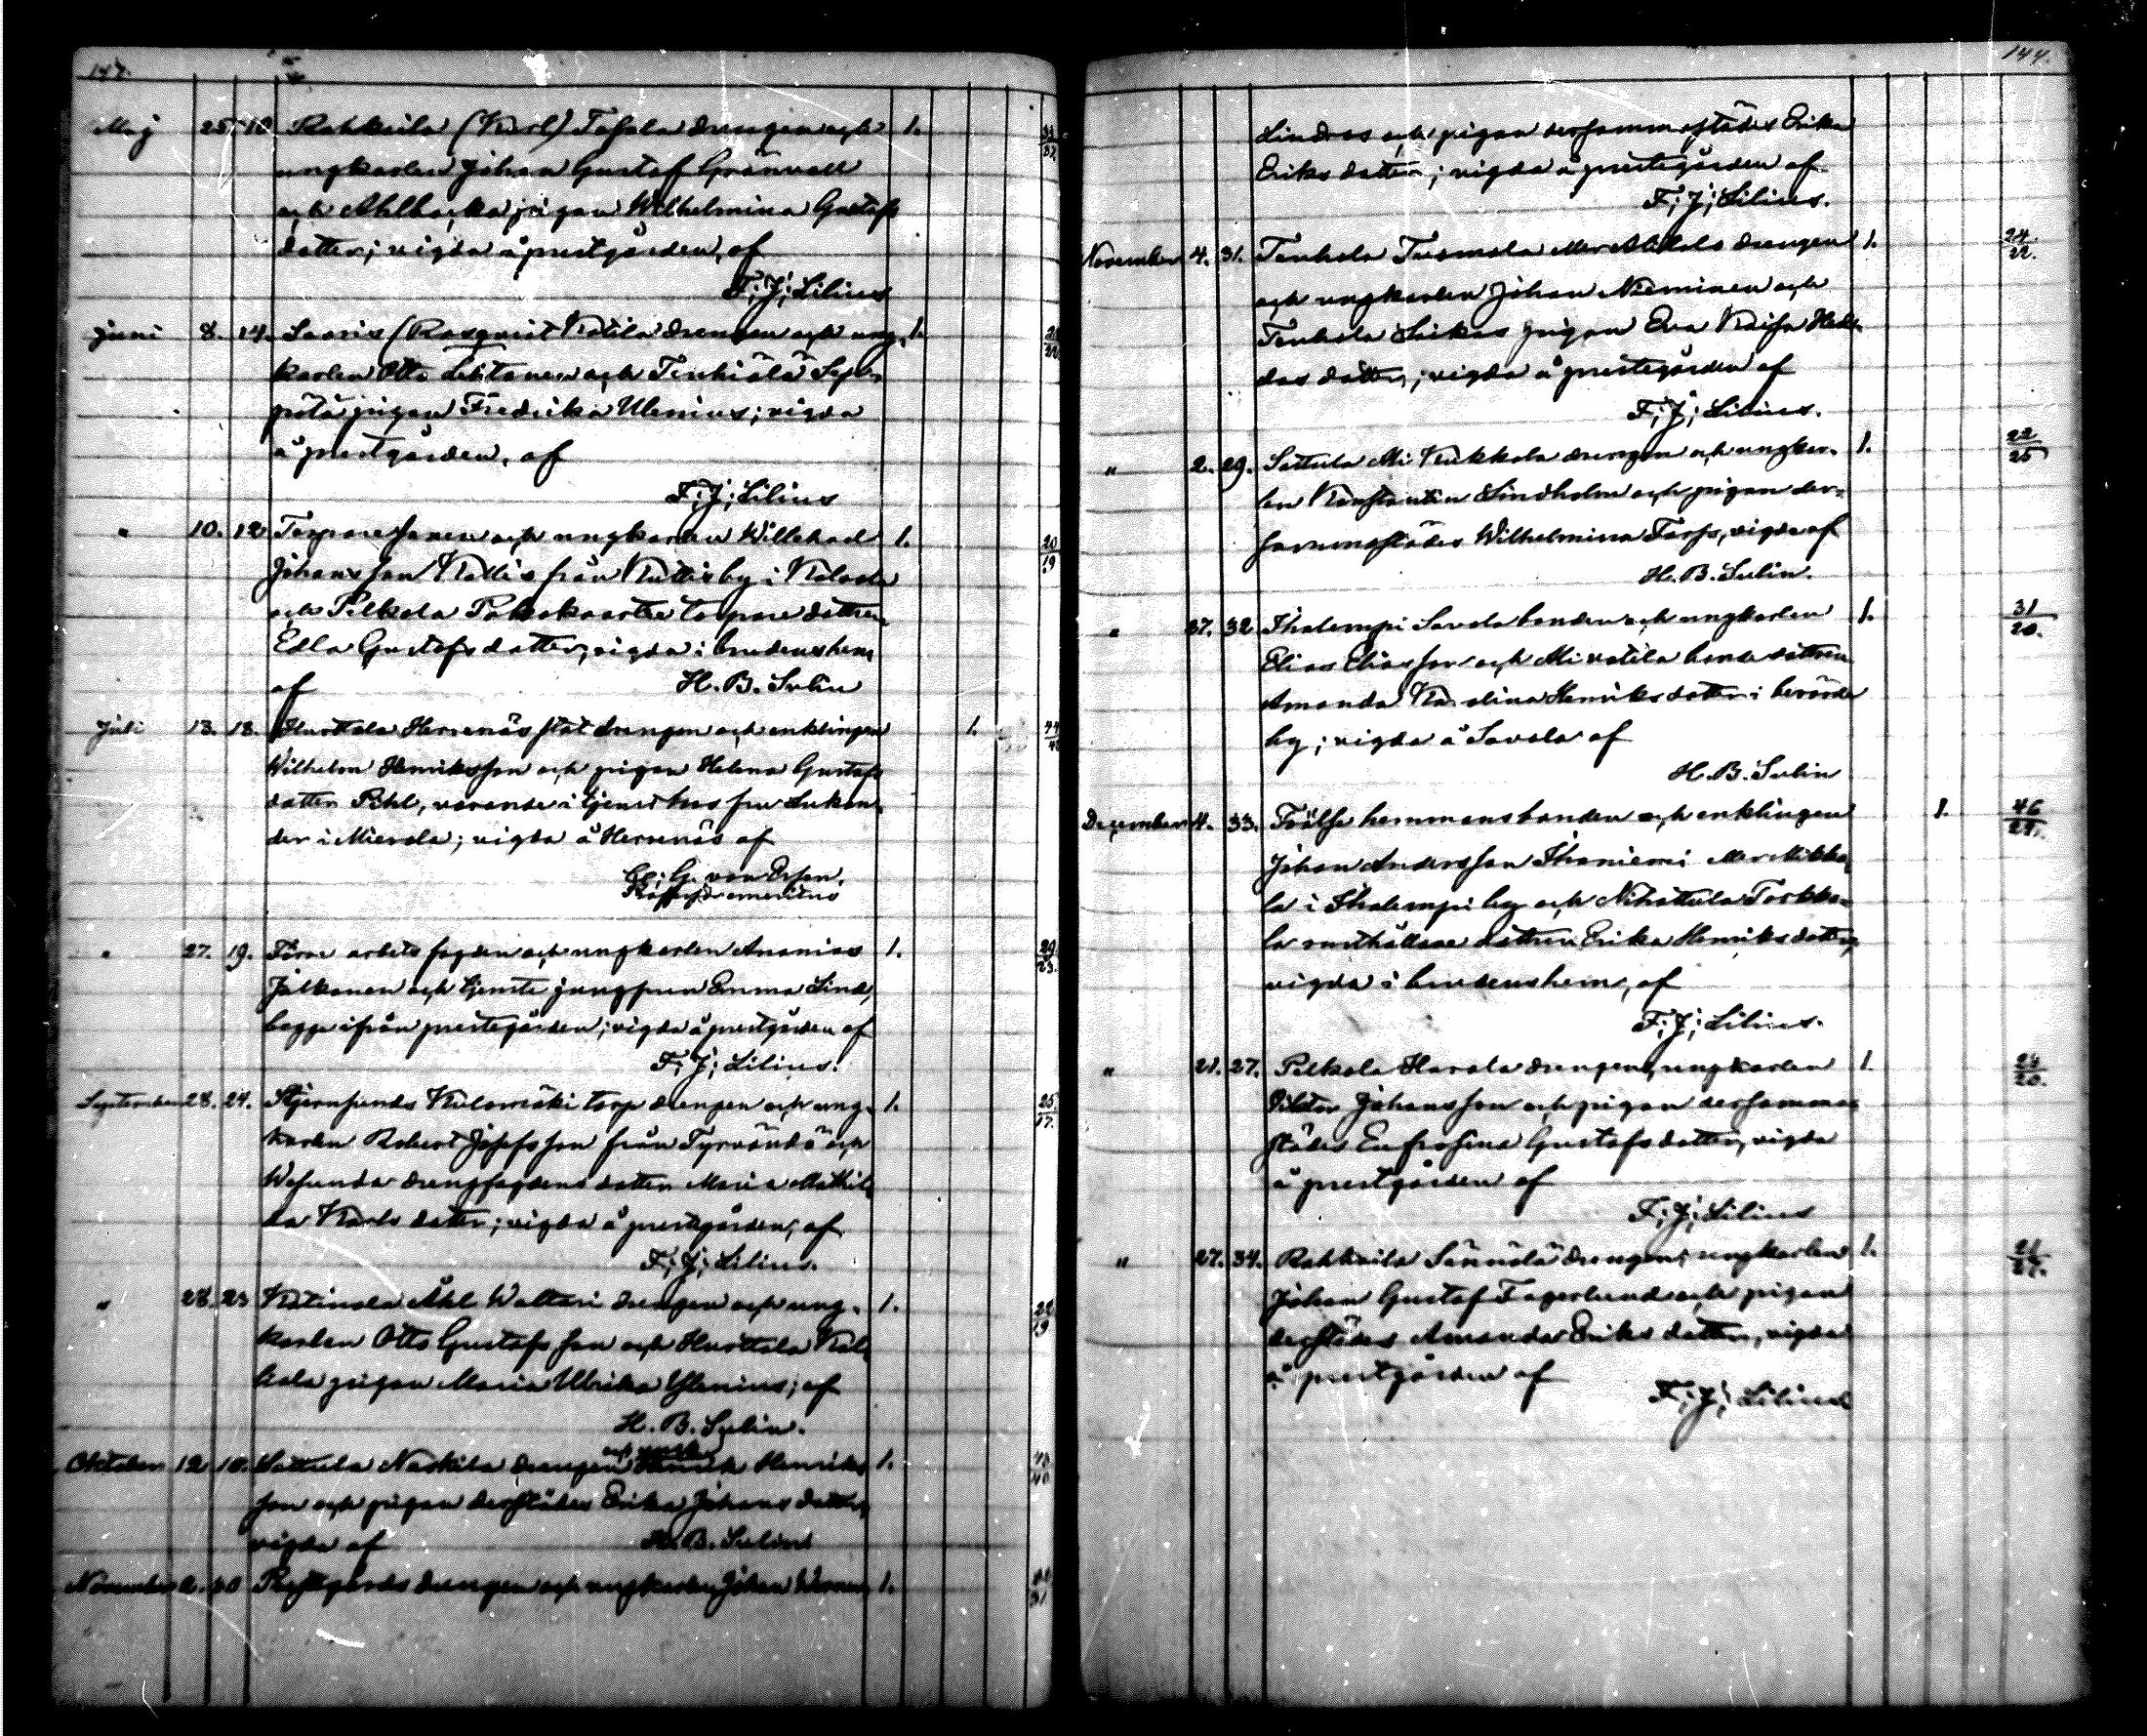 Maj 25. 10 Rahkoila (Karl) Tafala drengen och 1.
ungkarlen Johan Gustaf Grönvall
och Ahlbacka pigan Wilhelmina Gustafs
dotter; vigda å prestgården, af
F; J; Lilius
Juni 8. 14. Saaris (Rosqvist Kotila drengen och ung- 1.
karlen Otto Lehtonen och Tenhiälä Sep-
pälä pigan Fredrika Ulenius; vigda
å prestgården, af
F; J; Lilius
" 10. 12 Torparesonen och ungkarlen Willehad 1. 20/19
Johansson Kallis från Kallisby i Kalvola
och Pelkola torpare dottren
Edla Gustafsdotter, vigda i brudens hem
af H. B. Sulin
Juli 13. 18. Hurttala Herrenäs statdrengen och enklingen 1.
Wilhelm Henriksson och pigan Helena Gustafs
dotter Pihl, varande i tjenst hos fru Lukan-
der i Mierola; vigda å Herrenäs af
G. von Essen.
emeritus
" 27. 19. Förre arbetsfogden och ungkarlen Ananias 1. 29/23.
Jalkanen och tjenste jungfrun Emma Lind-
bagge ifrån prestegården; vigda å prestgården af
F; J; Lilius.
September 28. 24. Stjernsunds Kulomäki torp drengen och ung- 1. 25/17.
karlen Robert Josefsson från Tyrväntö och
Wesunda drengfogdens dotter Maria Mathil-
da Karls dotter; vigda å prestegården, af
F; J; Lilius.
" 28. 23 Katinala Åkl Waltari drengen och ung- 1.
karlen Otto Gustafsson och Hurttala Kal-
pigan Maria Ulrika Ylenius; af
H. B. Sulin.
Oktober 12 10. Sattula Naskila drengen Henriks 1.
son och pigan derstädes Erika Johans dotter,
vigda af H. B. Sulin
November 2. 30 Prestgårds drengen och ungkarlen Johan Werner 1.
144.
Lindroos och pigan dersammastädes Erika
Eriksdotter; vigda å prestegården af
F; J; Lilius.
November 4. 31. Tenhola Tuomola drengen 1. 24/22.
och ungkarlen Johan Nieminen och
Tenhola pigan Eva Kaisa
dotter; vigda å prestegården af
F; J; Lilius.
" 2. 29. Sattula Ali Kukkola drengen och ungkar- 1. 22/25
len Konstantin Lindholm och pigan der-
sammastädes Wilhelmina Fors, vigda af
H. B. Sulin.
" 37. 32 Ihalempi Savola bonden och ungkarlen 1. 31/20.
Elias Eliasson och bondedottren
Amanda Karolina Henriksdotter i berörde
by; vigda å Savola af
H. B. Sulin
December 4. 33. Frälse hemmansbonden och enklingen 1. 46/29.
Johan Andersson Ihaniemi Mikko-
la i Ihalempi by och Nihattula Torkko-
la rusthållare dottren Erika Henriksdotter,
vigda i brudens hem, af
F; J; Lilius.
" 21. 27. Pelkola Harola drengen, ungkarlen 1.
Viktor Johansson och pigan dersamma-
städes Eufrosina Gustafsdotter, vigda
å prestgården af
F; J; Lilius
" 27. 34. Rahkoila Sännälä drengen, ungkarlen 1.
Johan Gustaf Fagerlund och pigan
derstädes Amanda Eriks dotter, vigda
å prestgården af
F; J; Lilius